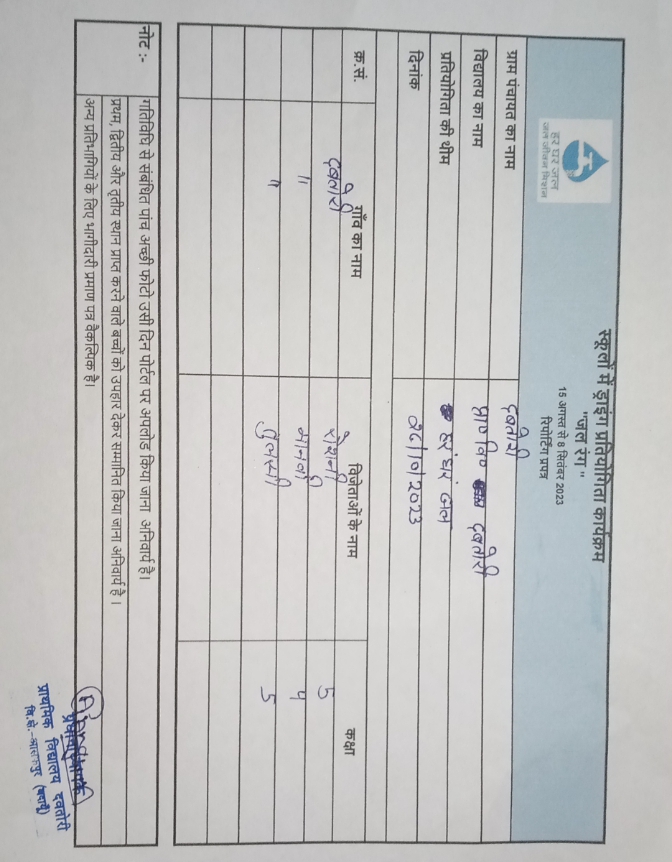 हर घर जल
जल जीवन मिशन
स्कूलों में ड्राइंग प्रतियोगिता कार्यक्रम
"जल रंग"
15 अगस्त से 8 सितंबर 2023
रिपोर्टिंग प्रपत्र
ग्राम पंचायत का नाम दबतोरी
विद्यालय का नाम प्रा० वि० दबतोरी
प्रतियोगिता की थीम हर घर जल
दिनांक
क्र.सं. गाँव का नाम विजेताओं के नाम कक्षा
दबतोरी रोशनी 5
" मानवी 4
" तुलसी 5
नोट :- गतिविधि से संबंधित पांच अच्छी फोटो उसी दिन पोर्टल पर अपलोड किया जाना अनिवार्य है।
प्रथम, द्वितीय और तृतीय स्थान प्राप्त करने वाले बच्चों को उपहार देकर सम्मानित किया जाना अनिवार्य है।
अन्य प्रतिभागियों के लिए भागीदारी प्रमाण पत्र वैकल्पिक है।
प्राथमिक विद्यालय दबतोरी
वि.क्षे.-आसफपुर (बदायूँ)